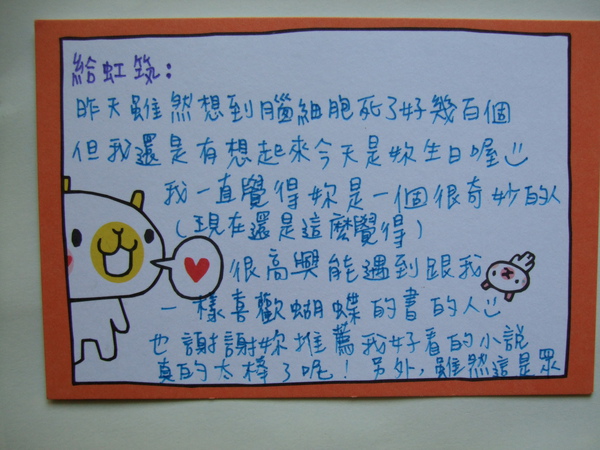 給虹筑:
昨天雖然想到腦細胞死了好幾百個
但我還是有想起來今天是妳生日喔
我一直覺得妳是一個很奇妙的人
(現在還是這麼覺得)
很高興能遇到跟我
一樣喜歡蝴蝶的書的人
也謝謝妳推薦我好看的小說
真的太棒了呢!另外,雖然這是眾